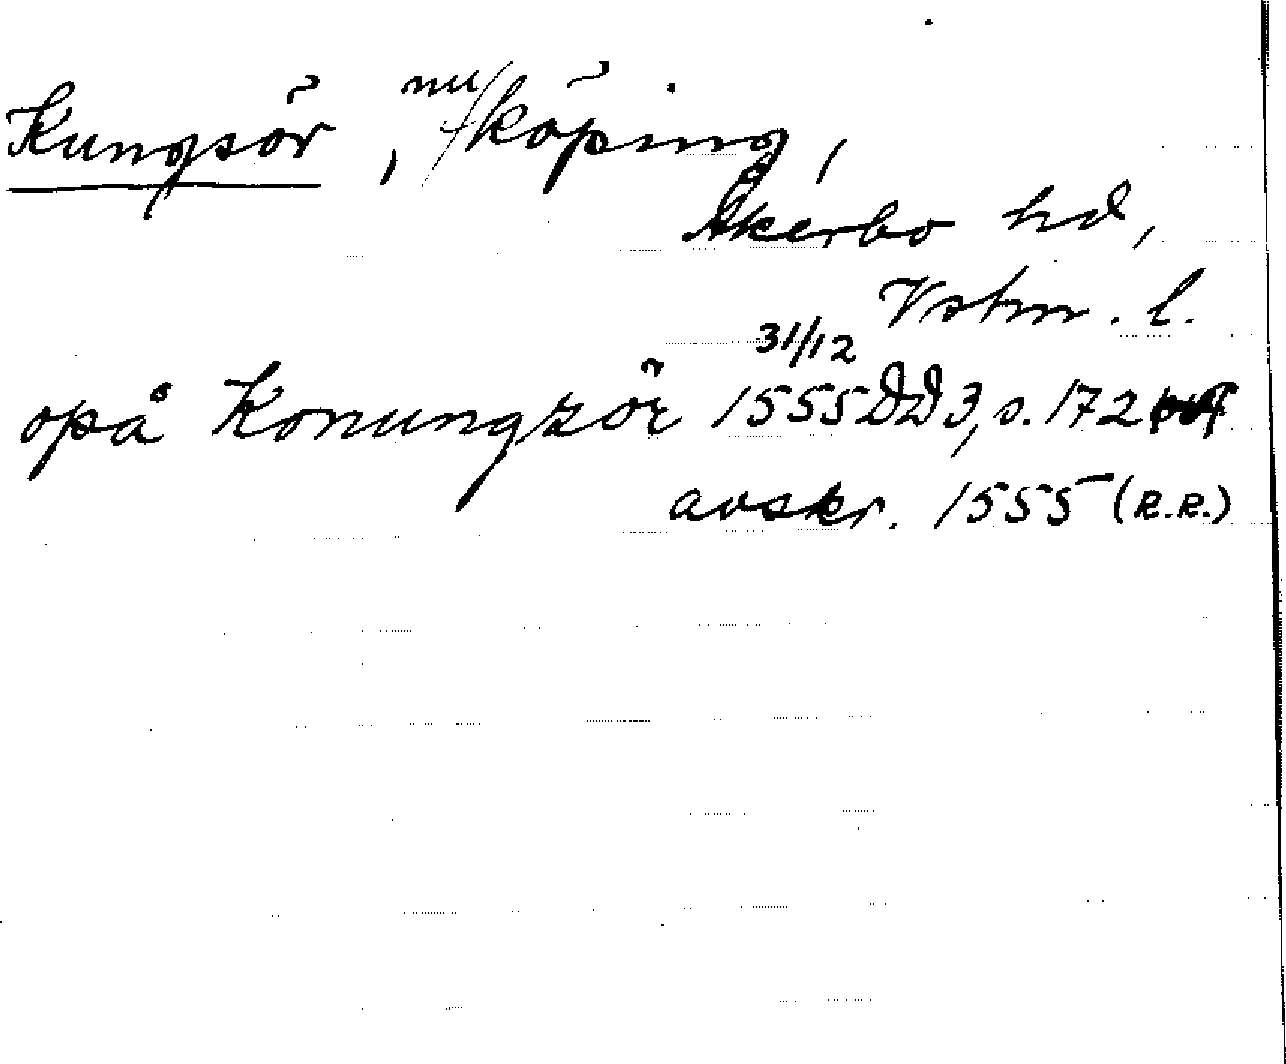 Kungsör, nu köping,
Åkerbo hd,
Vstm. l.
31/12
opå Konungzör 1555 DD 3, s. 172
avskr. 1555 (R.R.)